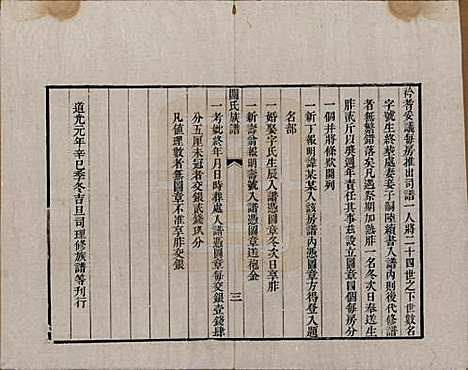 伶者妥議每房推出司譜一人將二十四世之下世數名
字號生終葬處妻妾子嗣陸續書入譜內則後代修譜
者無繁錯落矣凡遇祭期加熟胙一名冬次日奉送生
胙貳斤以獎週年責任其事茲設立圖章四個每房分
一個并將條欵開列
一新丁報明諱某某入該房譜內憑圖章方得登入題
名部
一婚娶字氏生辰入譜憑圖章冬次日享胙
一新壽翁報明壽號入譜憑圖章送砲金
關氏族譜
三
一考妣終年月日時葬處入譜憑圖章每交銀壹錢肆
分五厘未冠者交銀貳錢玖分
凡值理數者無圖章不准享胙交銀
道光元年辛巳季冬吉旦司理修族譜等刊行